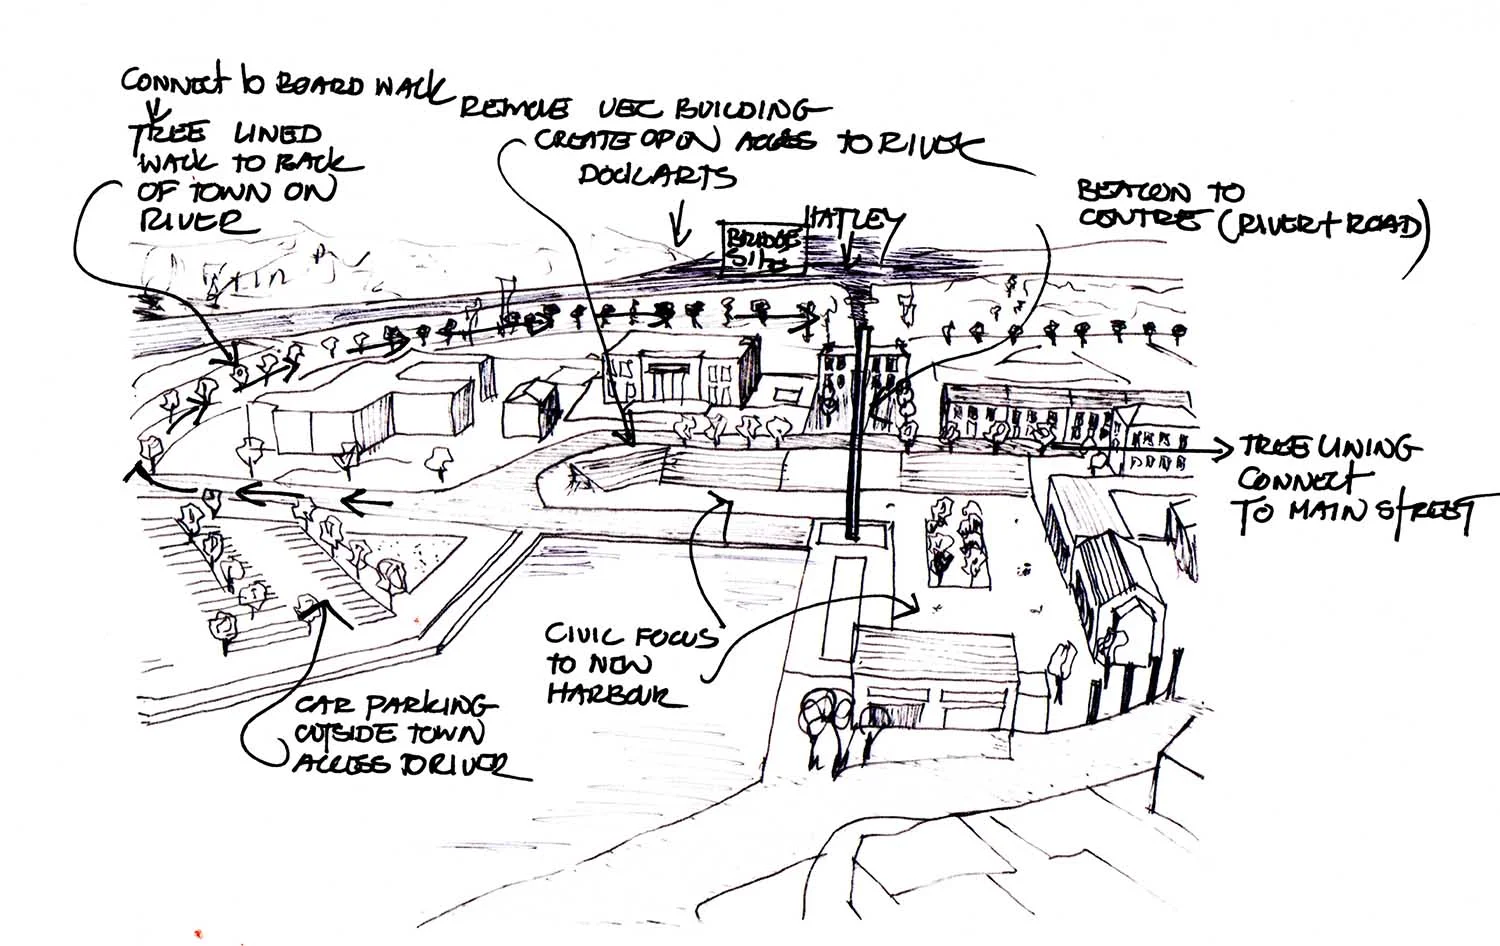 CONNECT to BOARD WALK
TREE LINED
WALK TO BACK
OF TOWN ON
RIVER
REMOVE VEC BUILDING
CREATE OPEN ACCESS TO RIVER
DOCK ARTS
HATLEY
BRIDGE
BEACON TO
CENTRE (RIVER + ROAD)
TREE LINING
CONNECT
TO MAIN STREET
CIVIC FOCUS
TO NEW
HARBOUR
CAR PARKING
OUTSIDE TOWN
ACCESS TO RIVER